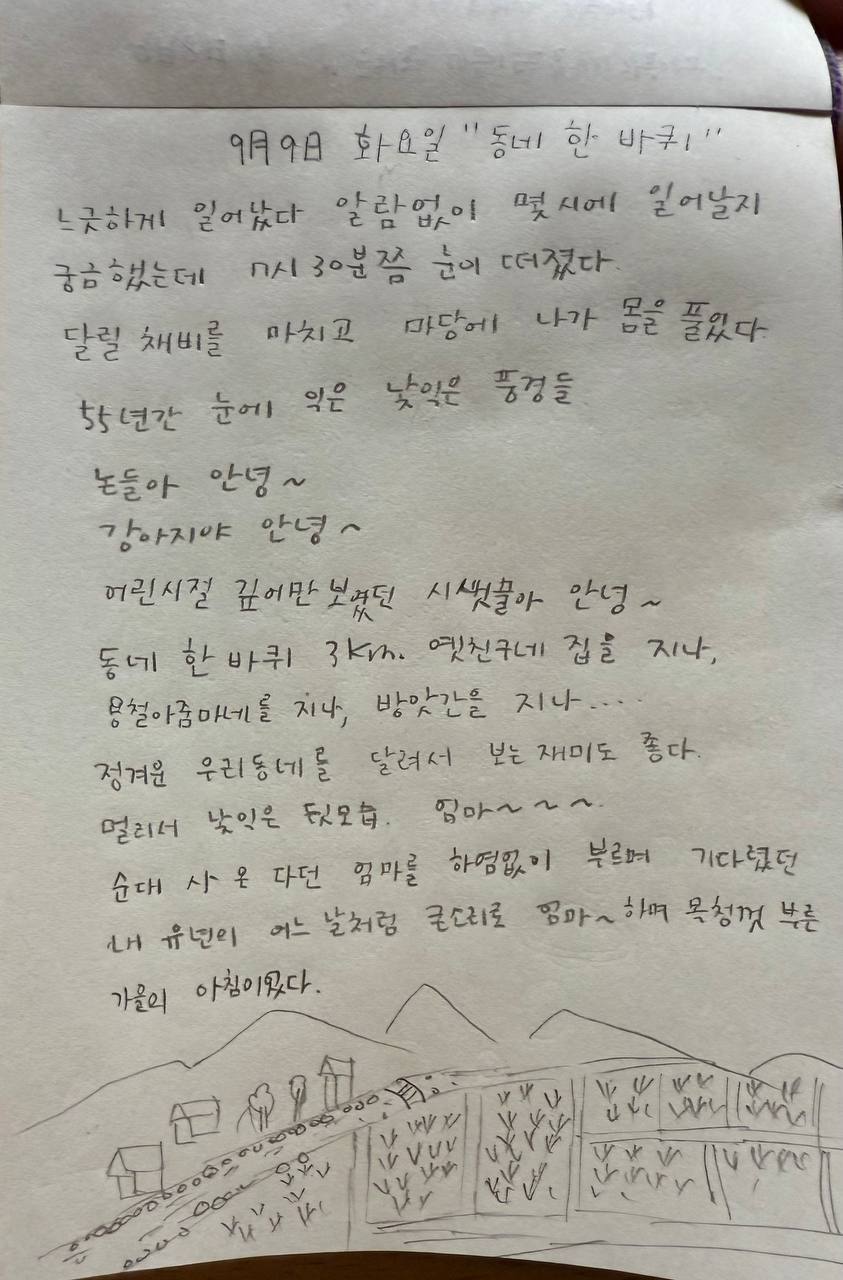 9月9日 화요일 "동네 한 바퀴"
느긋하게 일어났다 알람없이 몇시에 일어날지
궁금했는데 7시30분쯤 눈이 떠졌다.
달릴 채비를 마치고 마당에 나가 몸을 풀었다.
55년간 눈에 익은 낯익은 풍경들
논들아 안녕~
강아지야 안녕~
어린시절 깊어만 보였던 시냇물아 안녕~
동네 한바퀴 3km. 옛친구네 집을 지나,
용철아줌마네를 지나, 방앗간을 지나....
정겨운 우리동네를 달려서 보는재미도 좋다.
멀리서 낯익은 뒷모습. 엄마~~~.
순대 사 온 다던 엄마를 하염없이 부르며 기다렸던
내 유년의 어느 날처럼 큰소리로 엄마~하며 목청껏 부른
가을의 아침이었다.